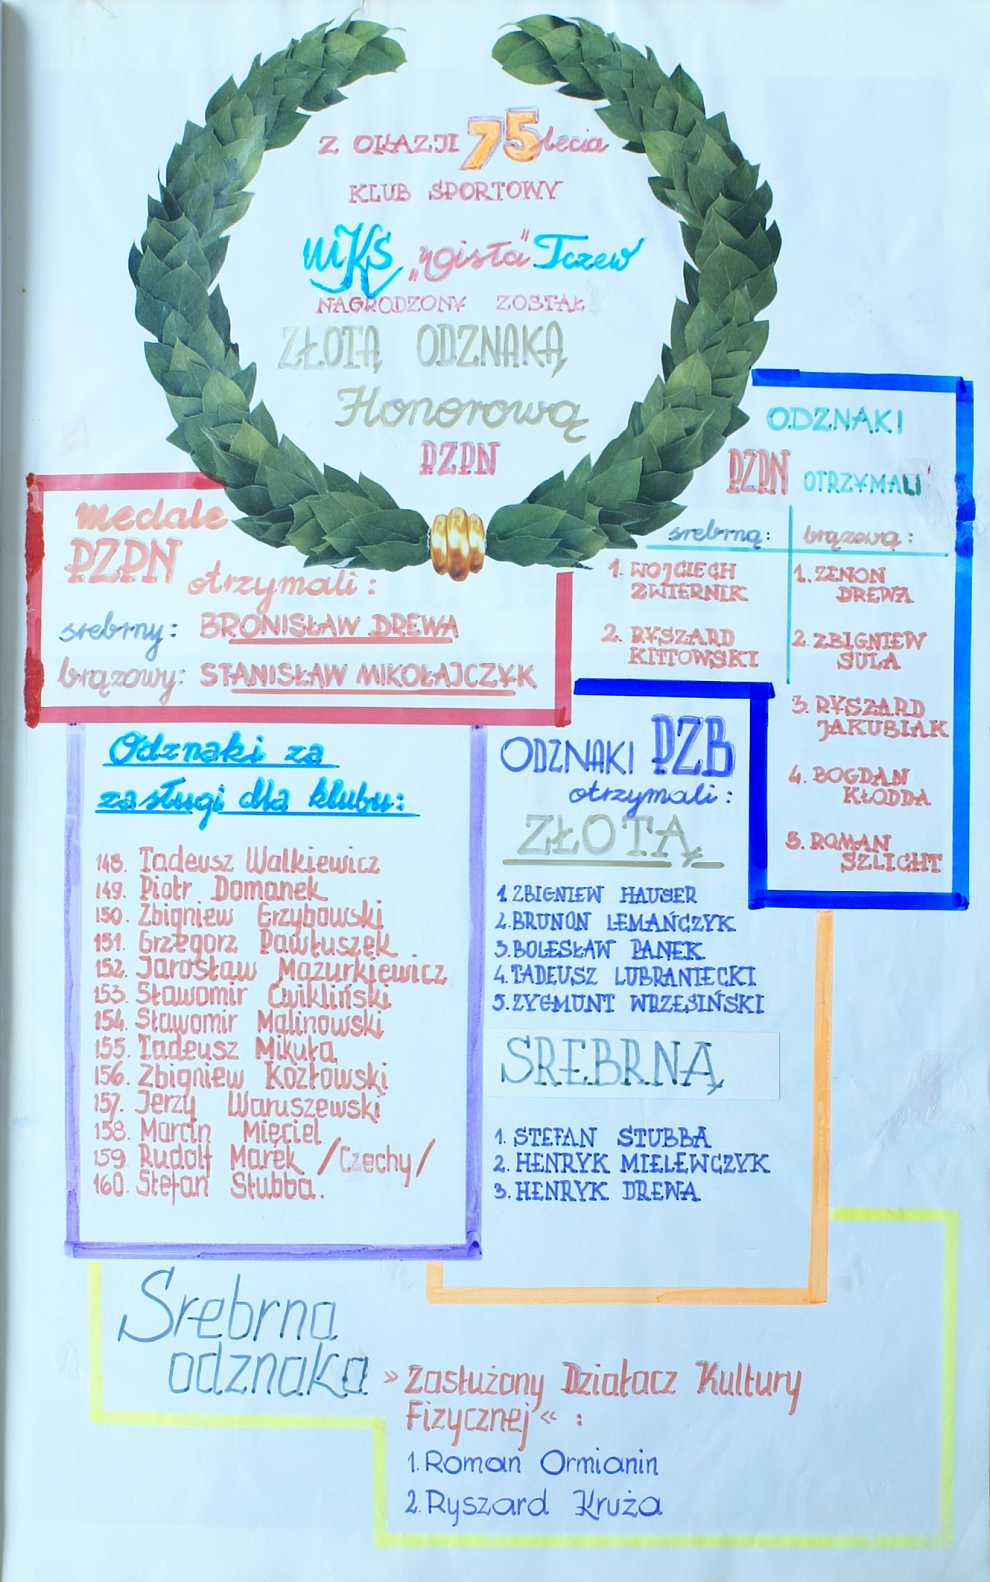 Z OKAZJI 75lecia
KLUB SPORTOWY
MKS „Wisła” Tczew
NAGRODZONY ZOSTAŁ
ZŁOTĄ ODZNAKĄ
Honorową
PZPN
medale
PZPN otrzymali:
srebrny: BRONISŁAW DREWA
brązowy: STANISŁAW MIKOŁAJCZYK
ODZNAKI
PZPN OTRZYMALI
srebrną:
1. WOJCIECH
ZWIERNIK
2. RYSZARD
KITTOWSKI
brązową:
1. ZENON
DREWA
2. ZBIGNIEW
SULA
3. RYSZARD
JAKUBIAK
4. BOGDAN
KŁODDA
5. ROMAN
SZLICHT
Odznaki za
zasługi dla klubu:
148. Tadeusz Walkiewicz
149. Piotr Domanek
150. Zbigniew Grzybowski
151. Grzegorz Pawłuszek
152. Jarosław Mazurkiewicz
153. Sławomir Ćwikliński
154. Sławomir Malinowski
155. Tadeusz Mikuła
156. Zbigniew Kozłowski
157. Jerzy Waruszewski
158. Marcin Mięciel
159. Rudolf Marek /Czechy/
160. Stefan Stubba.
ODZNAKI PZB
otrzymali:
ZŁOTĄ
1. ZBIGNIEW HAUSER
2. BRUNON LEMAŃCZYK
3. BOLESŁAW PANEK
4. TADEUSZ LUBRANIECKI
5. ZYGMUNT WRZESIŃSKI
SREBRNĄ
1. STEFAN STUBBA
2. HENRYK MIELEWCZYK
3. HENRYK DREWA
Srebrna
odznaka »Zasłużony Działacz Kultury
Fizycznej« :
1. Roman Ormianin
2. Ryszard Kruża